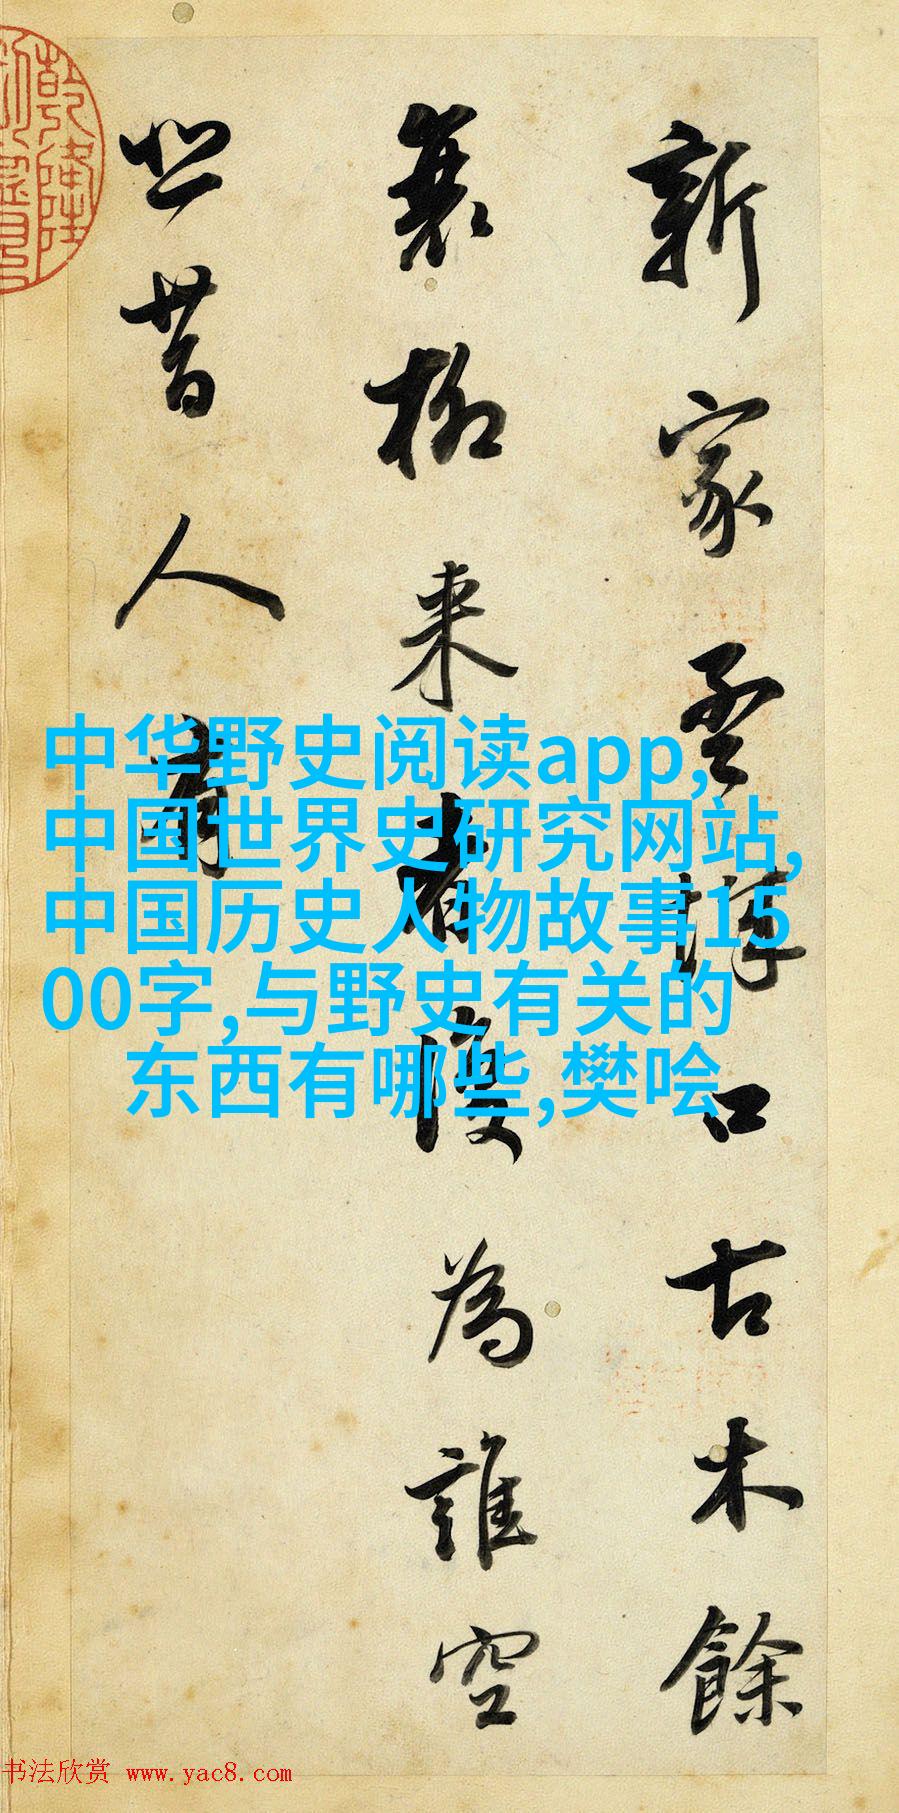 新家孟城口古木餘
衰柳来者復為誰空
悲昔人有
乾隆
中华野史阅读app,
中国世界史研究网站,
中国历史人物故事15
00字,与野史有关的
东西有哪些,樊哙
书法欣赏 www.yac8.com